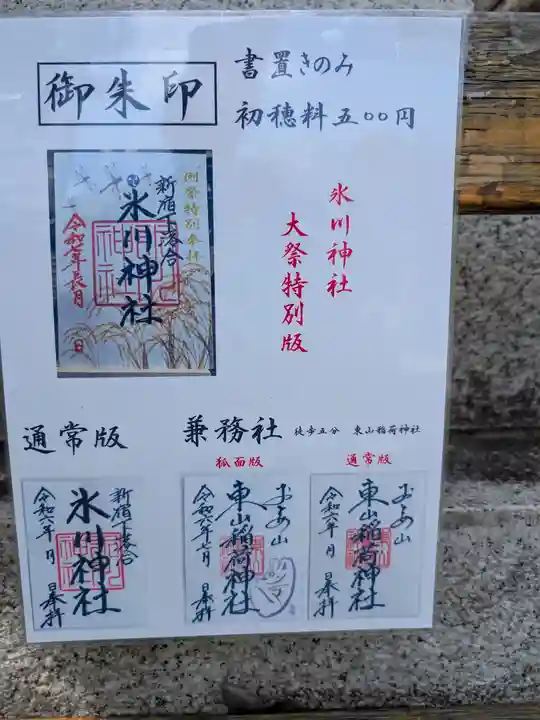 御朱印
書置きのみ
初穂料五〇〇円
氷川神社
大祭特別版
例祭特別奉拝
新宿下落合
氷川神社
令和七年長月 日
通常版
兼務社
徒歩五分 東山稲荷神社
狐面版
通常版
新宿下落合
氷川神社
令和六年 月 日奉拝
東山稲荷神社
令和六年七月 日奉拝
東山稲荷神社
令和六年 月 日奉拝